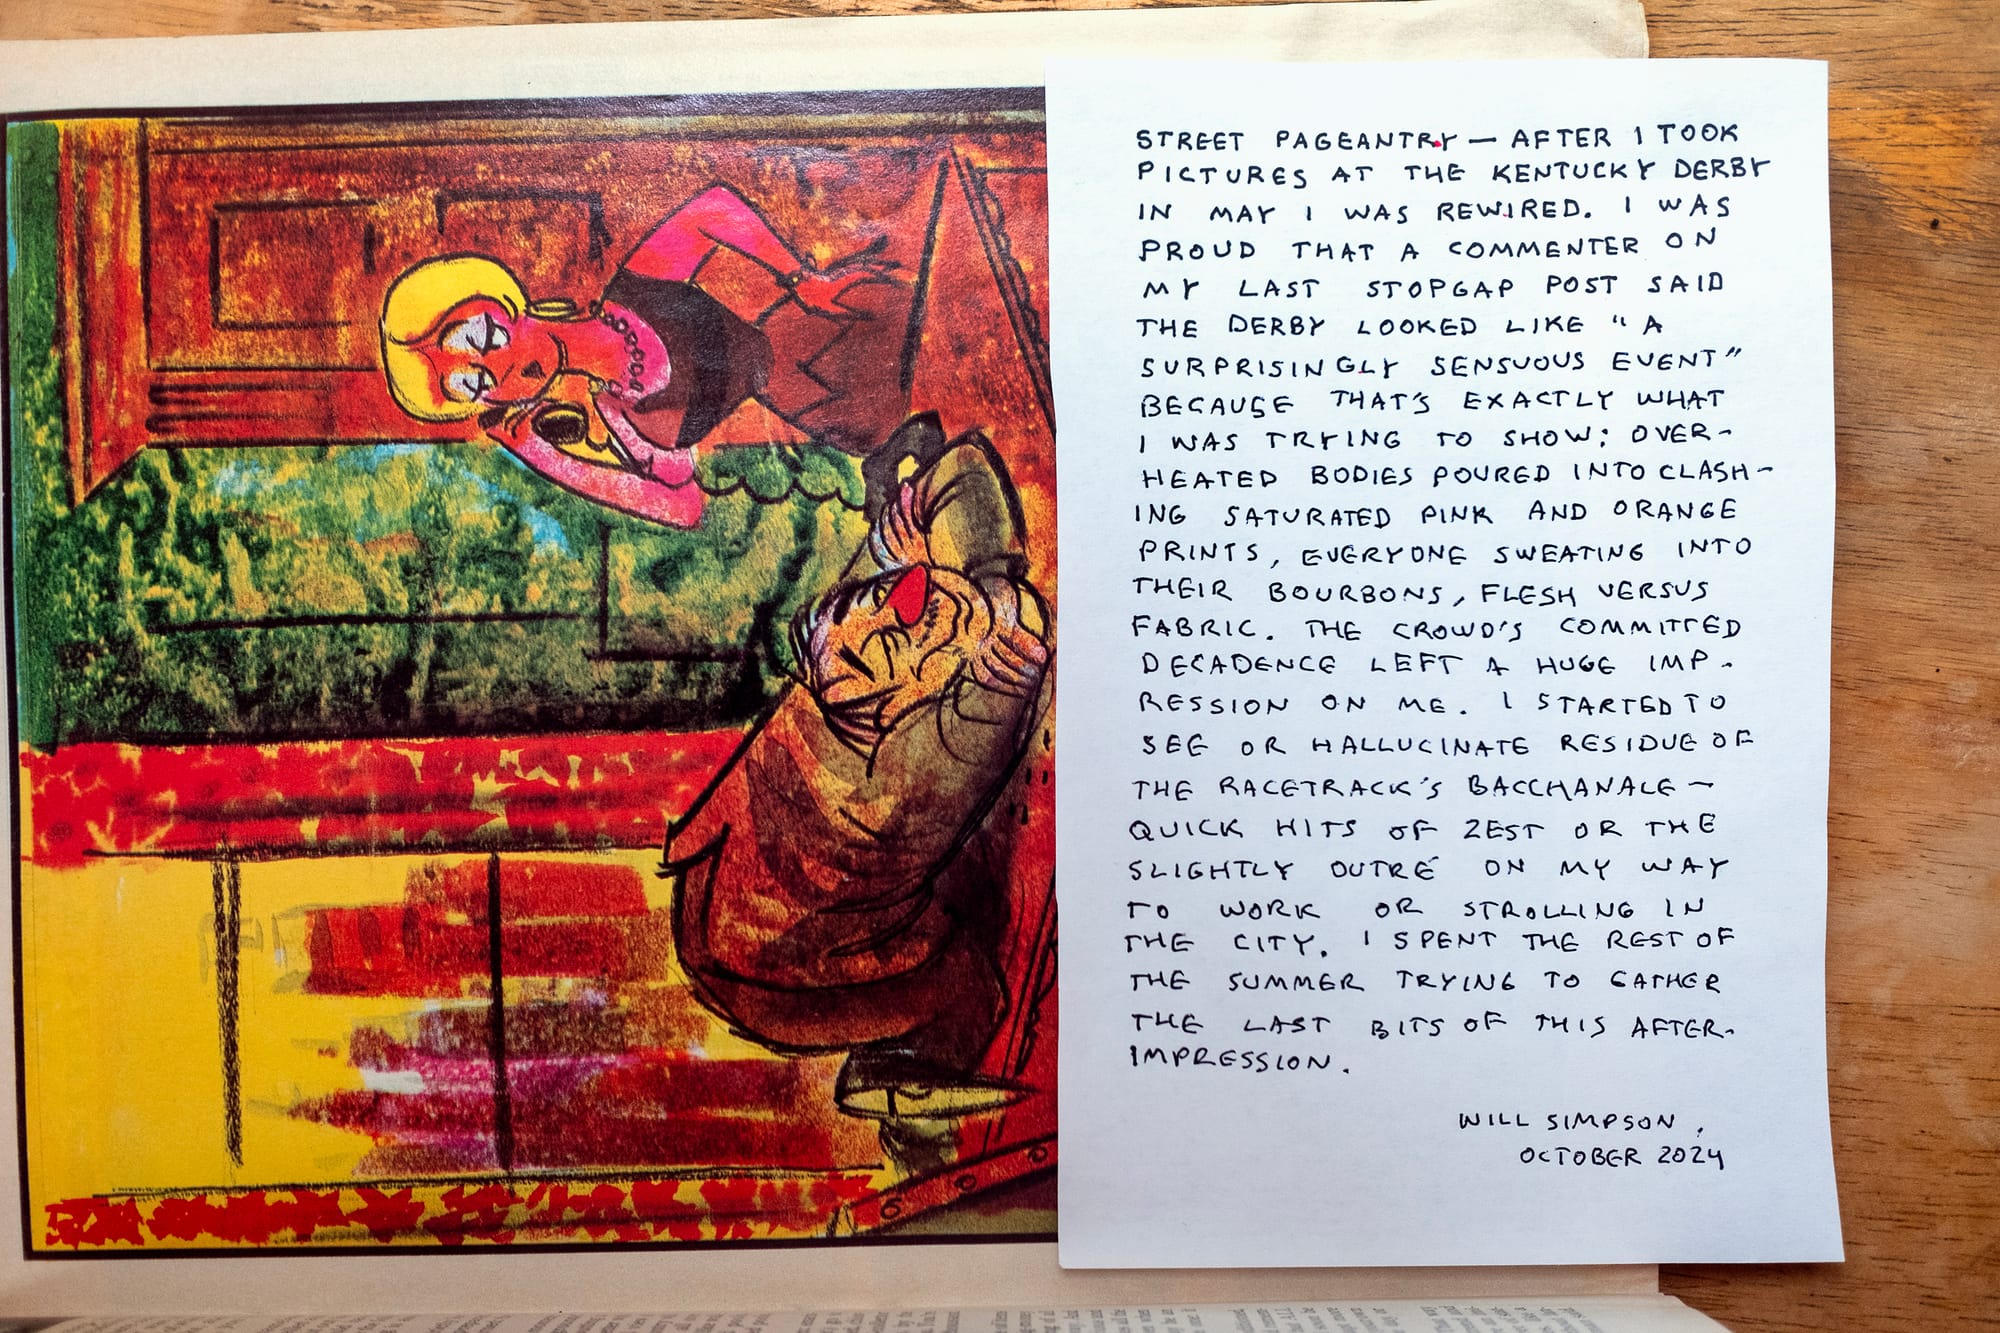 STREET PAGEANTRY — AFTER I TOOK
PICTURES AT THE KENTUCKY DERBY
IN MAY I WAS REWIRED. I WAS
PROUD THAT A COMMENTER ON
MY LAST STOPGAP POST SAID
THE DERBY LOOKED LIKE "A
SURPRISINGLY SENSUOUS EVENT"
BECAUSE THAT'S EXACTLY WHAT
I WAS TRYING TO SHOW: OVER-
HEATED BODIES POURED INTO CLASH-
ING SATURATED PINK AND ORANGE
PRINTS, EVERYONE SWEATING INTO
THEIR BOURBONS, FLESH VERSUS
FABRIC. THE CROWD'S COMMITTED
DECADENCE LEFT A HUGE IMP-
RESSION ON ME. I STARTED TO
SEE OR HALLUCINATE RESIDUE OF
THE RACETRACK'S BACCHANALE —
QUICK HITS OF ZEST OR THE
SLIGHTLY OUTRÉ ON MY WAY
TO WORK OR STROLLING IN
THE CITY. I SPENT THE REST OF
THE SUMMER TRYING TO GATHER
THE LAST BITS OF THIS AFTER-
IMPRESSION.
WILL SIMPSON,
OCTOBER 2024